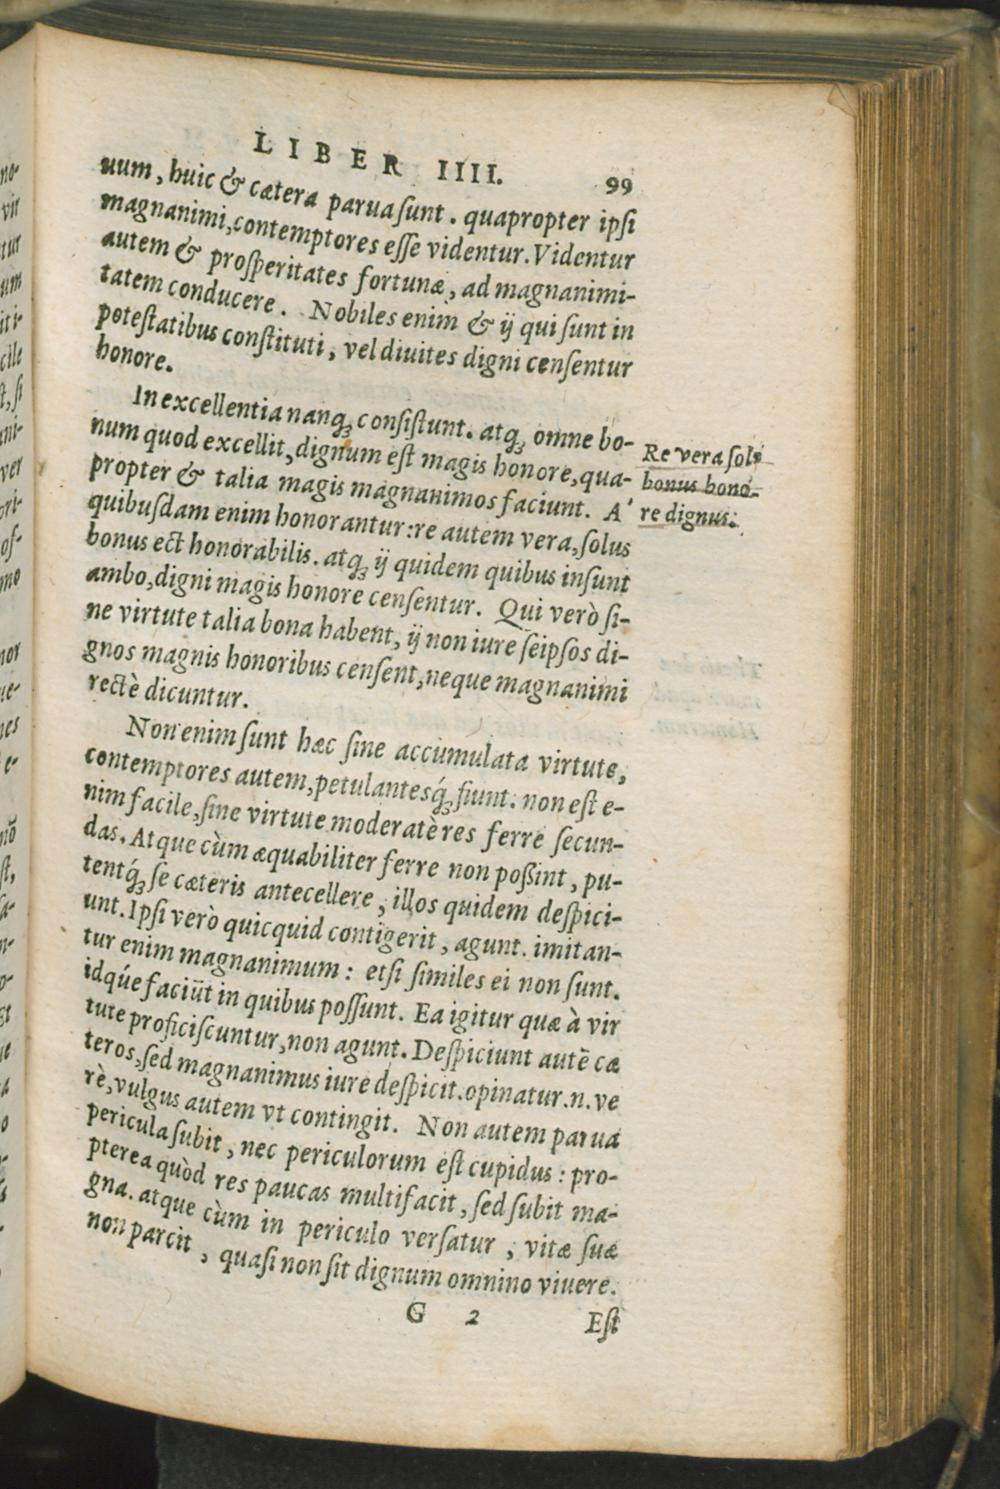 LIBER IIII. 99
uum, huic & cætera parua ſunt. quapropter ipſi
magnanimi, contemptores eſſe videntur. Videntur
autem & proſperitates fortunæ, ad magnanimi-
tatem conducere. Nobiles enim & ij qui ſunt in
poteſtatibus conſtituti, vel diuites digni cenſentur
honore.
In excellentia nanq; conſiſtunt. atq; omne bo-
num quod excellit, dignum eſt magis honore, qua-
propter & talia magis magnanimos faciunt. A'
quibuſdam enim honorantur: re autem vera, ſolus
bonus ect honorabilis. atq; ij quidem quibus inſunt
ambo, digni magis honore cenſentur. Qui verò ſi-
ne virtute talia bona habent, ij non iure ſeipſos di-
gnos magnis honoribus cenſent, neque magnanimi
rectè dicuntur.
Re vera ſolus
bonus hono-
re dignus.
Non enim ſunt hæc ſine accumulata virtute,
contemptores autem, petulantesq́; fiunt. non eſt e-
nim facile, ſine virtute moderatè res ferre ſecun-
das. Atque cùm æquabiliter ferre non poßint, pu-
tentq́; ſe cæteris antecellere, illos quidem deſpici-
unt. Ipſi verò quicquid contigerit, agunt. imitan-
tur enim magnanimum: etſi ſimiles ei non ſunt.
idq́ue faciũt in quibus poſſunt. Ea igitur quæ à vir
tute proficiſcuntur, non agunt. Deſpiciunt autē cæ
teros, ſed magnanimus iure deſpicit. opinatur .n. ve
rè, vulgus autem vt contingit. Non autem parua
pericula ſubit, nec periculorum eſt cupidus: pro-
pterea quòd res paucas multifacit, ſed ſubit ma-
gna. atque cùm in periculo verſatur, vitæ ſuæ
non parcit, quaſi non ſit dignum omnino viuere.
G 2 Eſt